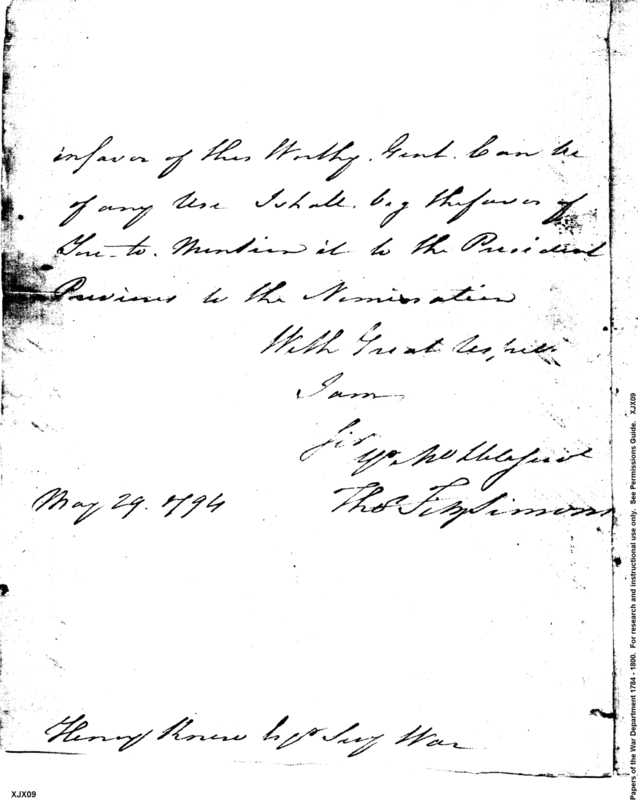 in favor of this Worthy. Gent. Can be
of any Use I shall. beg the favor of
You to. Mention it to the President
Previous to the Nomination
With Great Respect
I am
Sir
Yr. Mo Hble Servt
Thos. FitzSimons
May 29. 1794
Henry Knox Esqr Secy War
XJX09
Papers of the War Department 1784 - 1800. For research and instructional use only. See Permissions Guide. XJX09